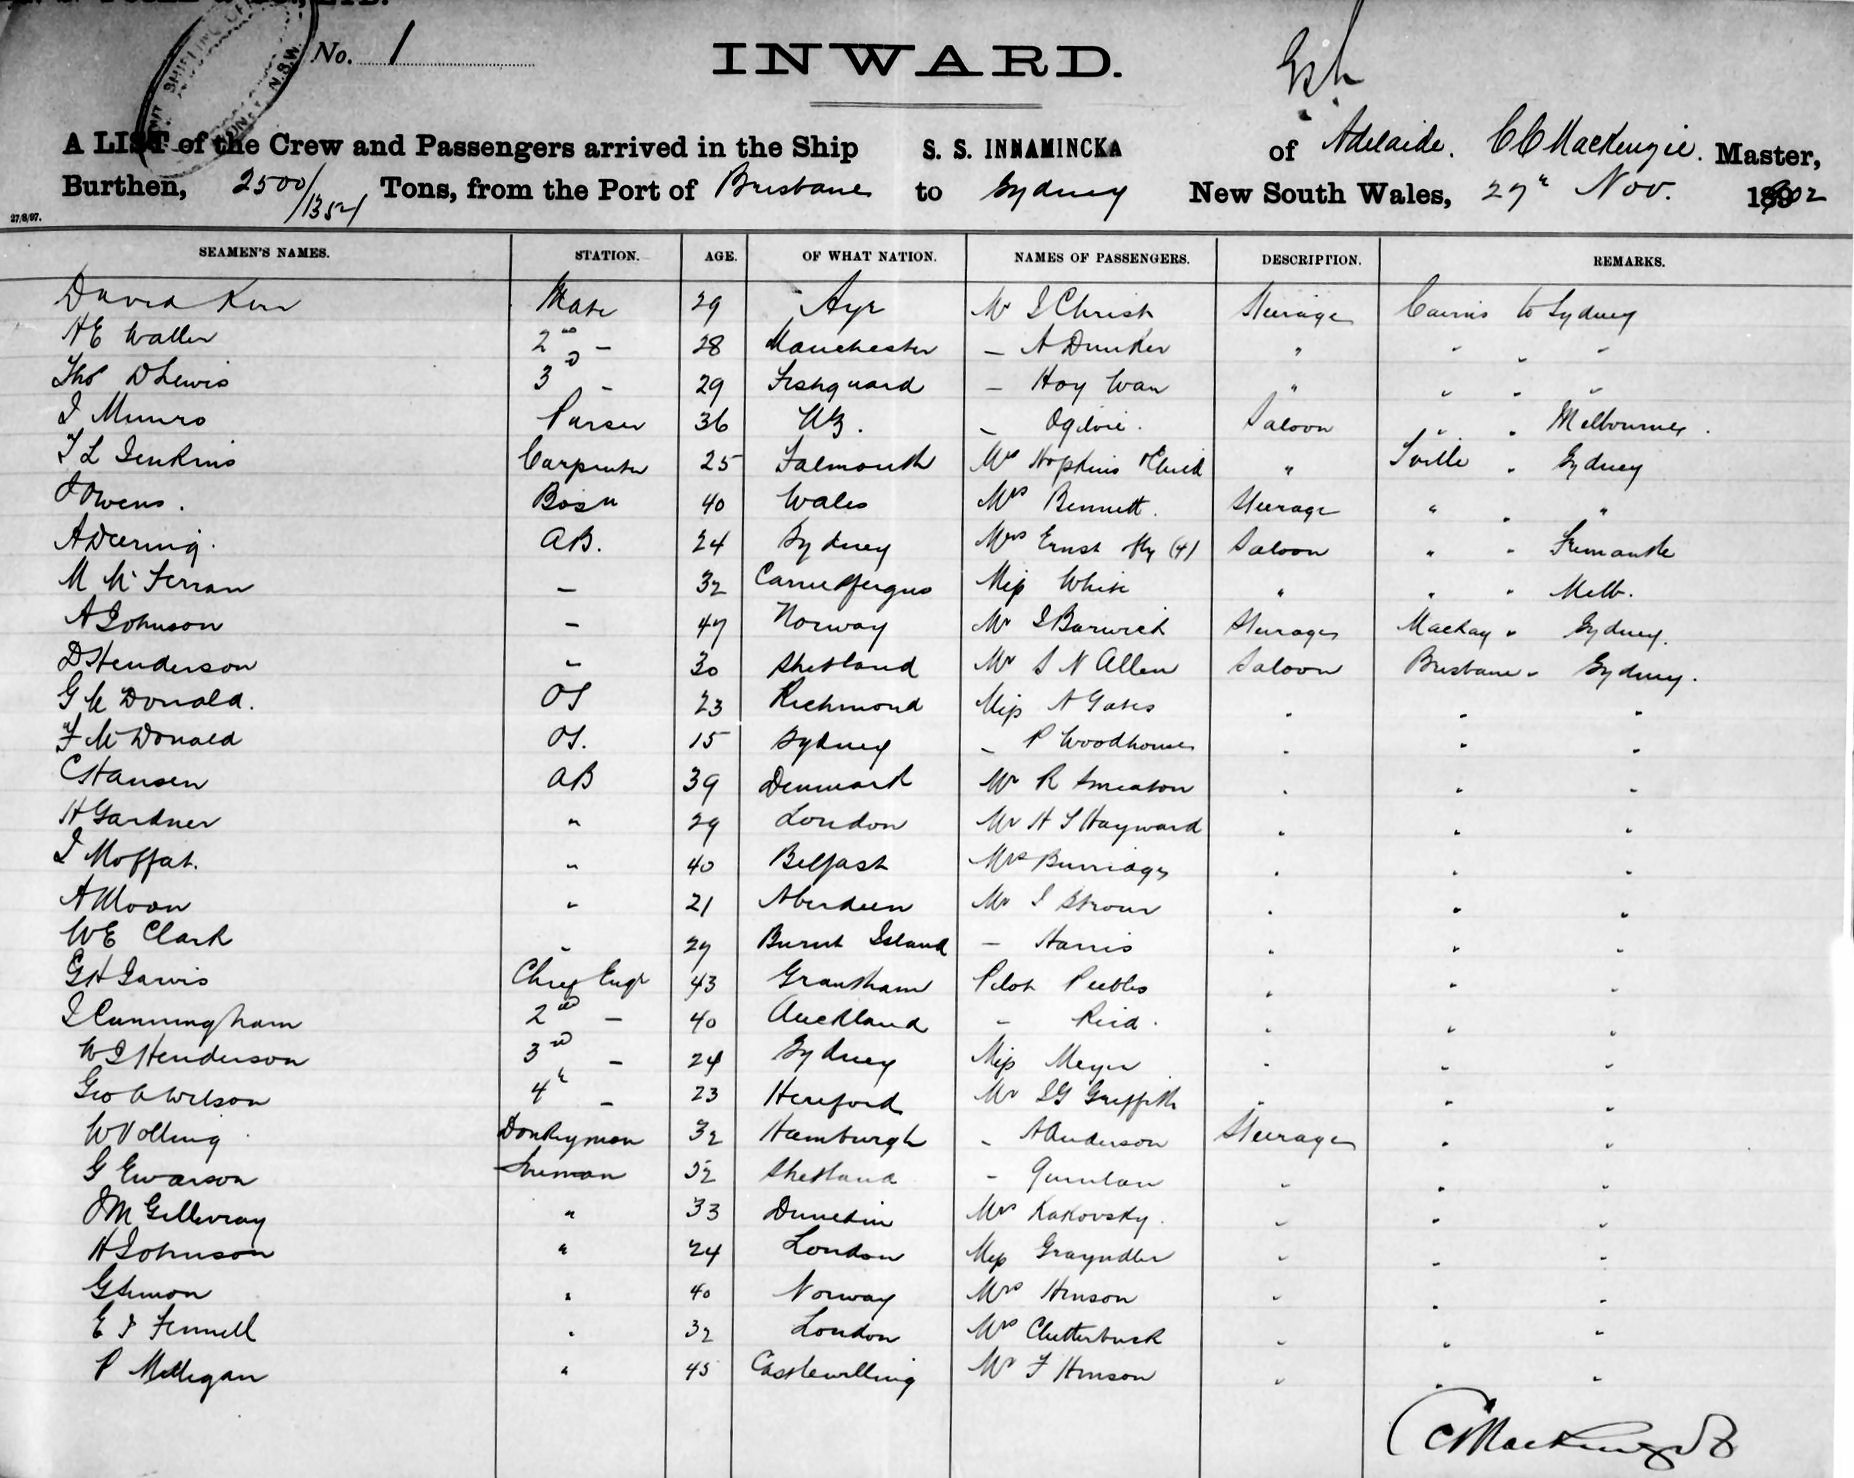 No. 1
INWARD.
A LIST of the Crew and Passengers arrived in the Ship S. S. INNAMINCKA of Adelaide. C C MacKenzie. Master,
Burthen, 2500/1352 Tons, from the Port of Brisbane to Sydney New South Wales, 27th Nov. 1902
27/8/97.
SEAMEN'S NAMES. STATION. AGE. OF WHAT NATION. NAMES OF PASSENGERS. DESCRIPTION. REMARKS.
David Kerr Mate 29 Ayr Mr J Christ Steerage Cairns to Sydney
H E Waller 2nd — 28 Manchester — A Dunker " " " "
Thos D Lewis 3d — 29 Fishguard — Hoy Wan " " " "
J Munro Purser 36 NZ. — Ogilvie. Saloon " " Melbourne.
T L Jenkins Carpenter 25 Falmouth Mrs Hopkins & Child " Tville " Sydney
J Owens. Bosn 40 Wales Mrs Bennett. Steerage " " "
A Deering. AB. 24 Sydney Mrs Ernst fly (4) Saloon " " Fremantle
M McFerran — 32 Carrickfergus Miss White " " " Melb.
A Johnson — 47 Norway Mr J Barwick Steerage Mackay " Sydney.
D Henderson " 30 Shetland Mr S N Allen Saloon Brisbane " Sydney.
G McDonald. OS 23 Richmond Miss A Gates " " "
F McDonald OS. 15 Sydney — P Woodhouse " " "
C Hansen AB 39 Denmark Mr R Smeaton " " "
H Gardner " 29 London Mr H S Hayward " " "
J Moffat. " 40 Belfast Mrs Burridge " " "
A Moon " 21 Aberdeen Mr J " " "
W E Clark " 27 Burnt Island — Harris " " "
G H Jarvis Chief Engr 43 Grantham Pilot Peebles " " "
J Cunningham 2nd — 40 Auckland — Reid. " " "
W J Henderson 3rd — 24 Sydney Miss Meyer " " "
Geo A Wilson 4th — 23 Hereford Mr S G Griffith " " "
W Volling Donkeyman 32 Hamburgh — A Anderson Steerage " "
G Ewarson Fireman 52 Shetland — Quinlan " " "
J McGillivray " 33 Dunedin Mrs Kakovsky. " " "
H Johnson " 24 London Miss Grayndler " " "
G Simon " 40 Norway Mrs Henson " " "
E J Fennell " 32 London Mrs Clutterbuck " " "
P Milligan " 45 Castlewelling Mr F Henson " " "
C C MacKenzie